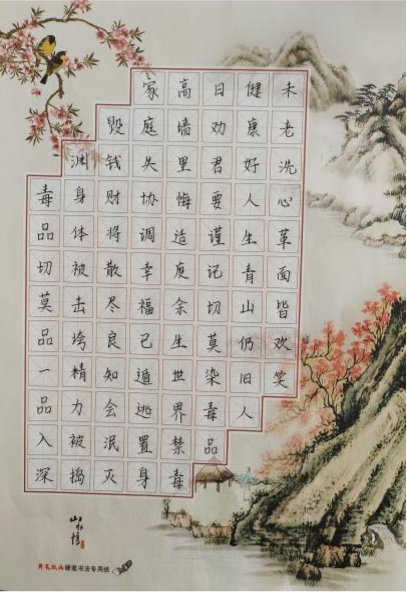 毒品切莫品一品入深
渊身体被击垮精力被捣
毁钱财将散尽良知会泯灭
家庭失协调幸福己遁逃置身
高墙里悔造度余生世界禁毒
日劝君要谨记切莫染毒品
健康好人生青山仍旧人
未老洗心革面皆欢笑
山水情
硬笔书法专用纸